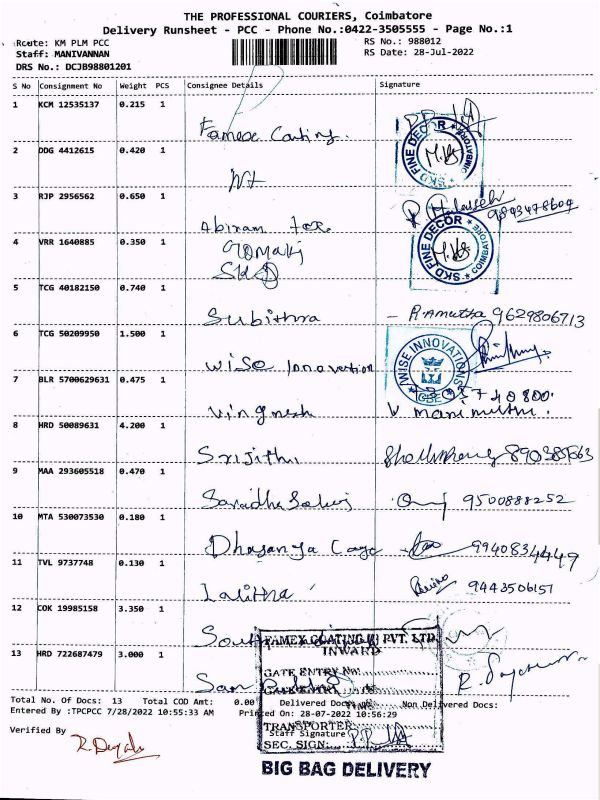 THE PROFESSIONAL COURIERS, Coimbatore
Delivery Runsheet - PCC - Phone No.:0422-3505555 - Page No.:1
Route: KM PLM PCC
RS No.: 988012
Staff: MANIVANNAN
RS Date: 28-Jul-2022
DRS No.: DCJB98801201
S No Consignment No Weight PCS Consignee Details Signature
1 KCM 12535137 0.215 1
Famexe Coating.
SKD FINE DECOR COIMBATORE
2 DDG 4412615 0.420 1
3 RJP 2956562 0.650 1
Abiram Tex
4 VRR 1640885 0.350 1
SKD
SKD FINE DECOR COIMBATORE
5 TCG 40182150 0.740 1
Subithra - R.Amutha 9629806713
6 TCG 50209950 1.500 1
wise Innovation
WISE INNOVATIONS CBE
7 BLR 5700629631 0.475 1
Vingnesh
8 HRD 50089631 4.200 1
Srijithi
9 MAA 293605518 0.470 1
9500888252
10 MTA 530073530 0.180 1
9940834449
11 TVL 9737748 0.130 1
Lalitha 9443506151
12 COK 19985158 3.350 1
FAMEX COATING (I) PVT. LTD.
INWARD
13 HRD 722687479 3.000 1
GATE ENTRY No:
Total No. Of Docs: 13 Total COD Amt: 0.00 Delivered Docs: Non Delivered Docs:
Entered By :TPCPCC 7/28/2022 10:55:33 AM Printed On: 28-07-2022 10:56:29
TRANSPORTER
Verified By
Staff Signature
SEC. SIGN:
BIG BAG DELIVERY